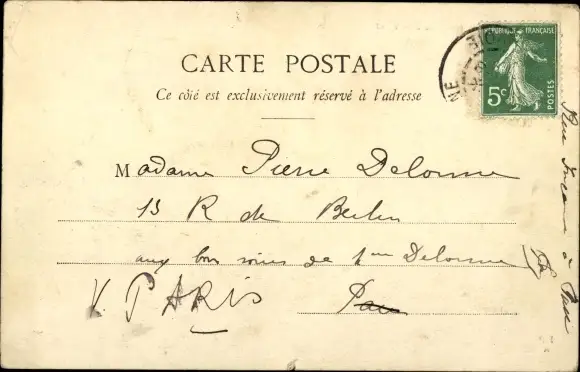 CARTE POSTALE
Ce côté est exclusivement réservé à l'adresse
RÉPUBLIQUE FRANÇAISE
5c
POSTES
Madame Pierre Delorme
13 R de Berlin
aux bons soins de Mme Delorme
V. PARIS